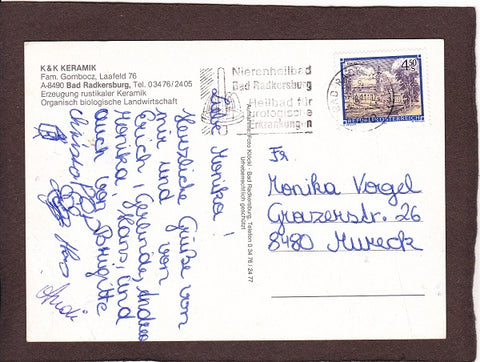 K&K KERAMIK
Fam. Gombocz, Laafeld 76
A-8490 Bad Radkersburg, Tel. 03476/2405
Erzeugung rustikaler Keramik
Organisch biologische Landwirtschaft
Nierenheilbad
Bad Radkersburg
Heilbad für
urologische
Erkrankungen
4.50
REPUBLIK ÖSTERREICH
Liebe Monika!
Herzliche Grüße von
mir und von
Erich, Gerlinde, Andrea
Monika, Hans, und
auch von Brigitte
Christa
Hans
Andi
Bad Radkersburg, Telefon 0 34 76 / 24 77
Urheberrechtlich geschützt
Fr
Monika Vogel
Grazerstr. 26
8480 Mureck